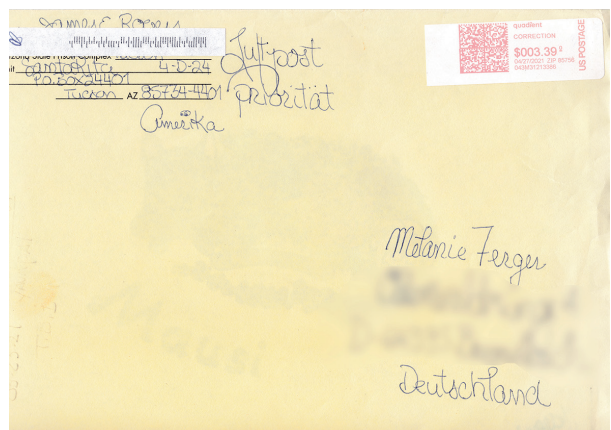 Arizona State Prison Complex
Unit Santa Rita 4-D-24
P.O. Box 24401
Tucson AZ 85734-4401
Amerika
Luftpost
priorität
quadient
CORRECTION
$003.39
04/27/2021 ZIP 85756
043M31213566
US POSTAGE
Melanie Ferger
Deutschland